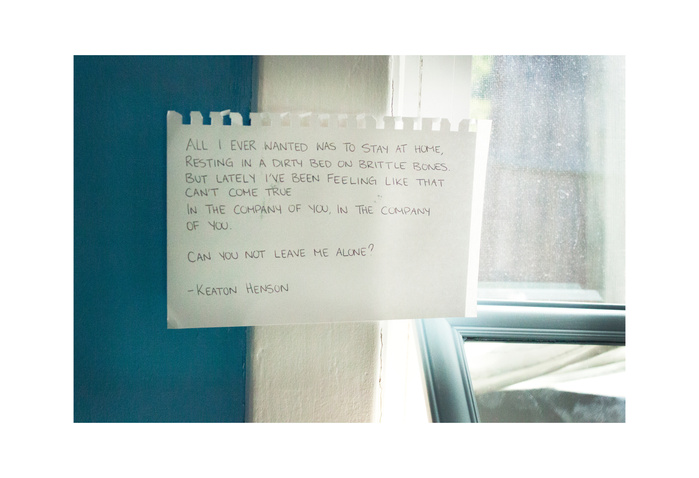 ALL I EVER WANTED WAS TO STAY AT HOME,
RESTING IN A DIRTY BED ON BRITTLE BONES.
BUT LATELY I'VE BEEN FEELING LIKE THAT
CAN'T COME TRUE
IN THE COMPANY OF YOU, IN THE COMPANY
OF YOU.
CAN YOU NOT LEAVE ME ALONE?
-KEATON HENSON